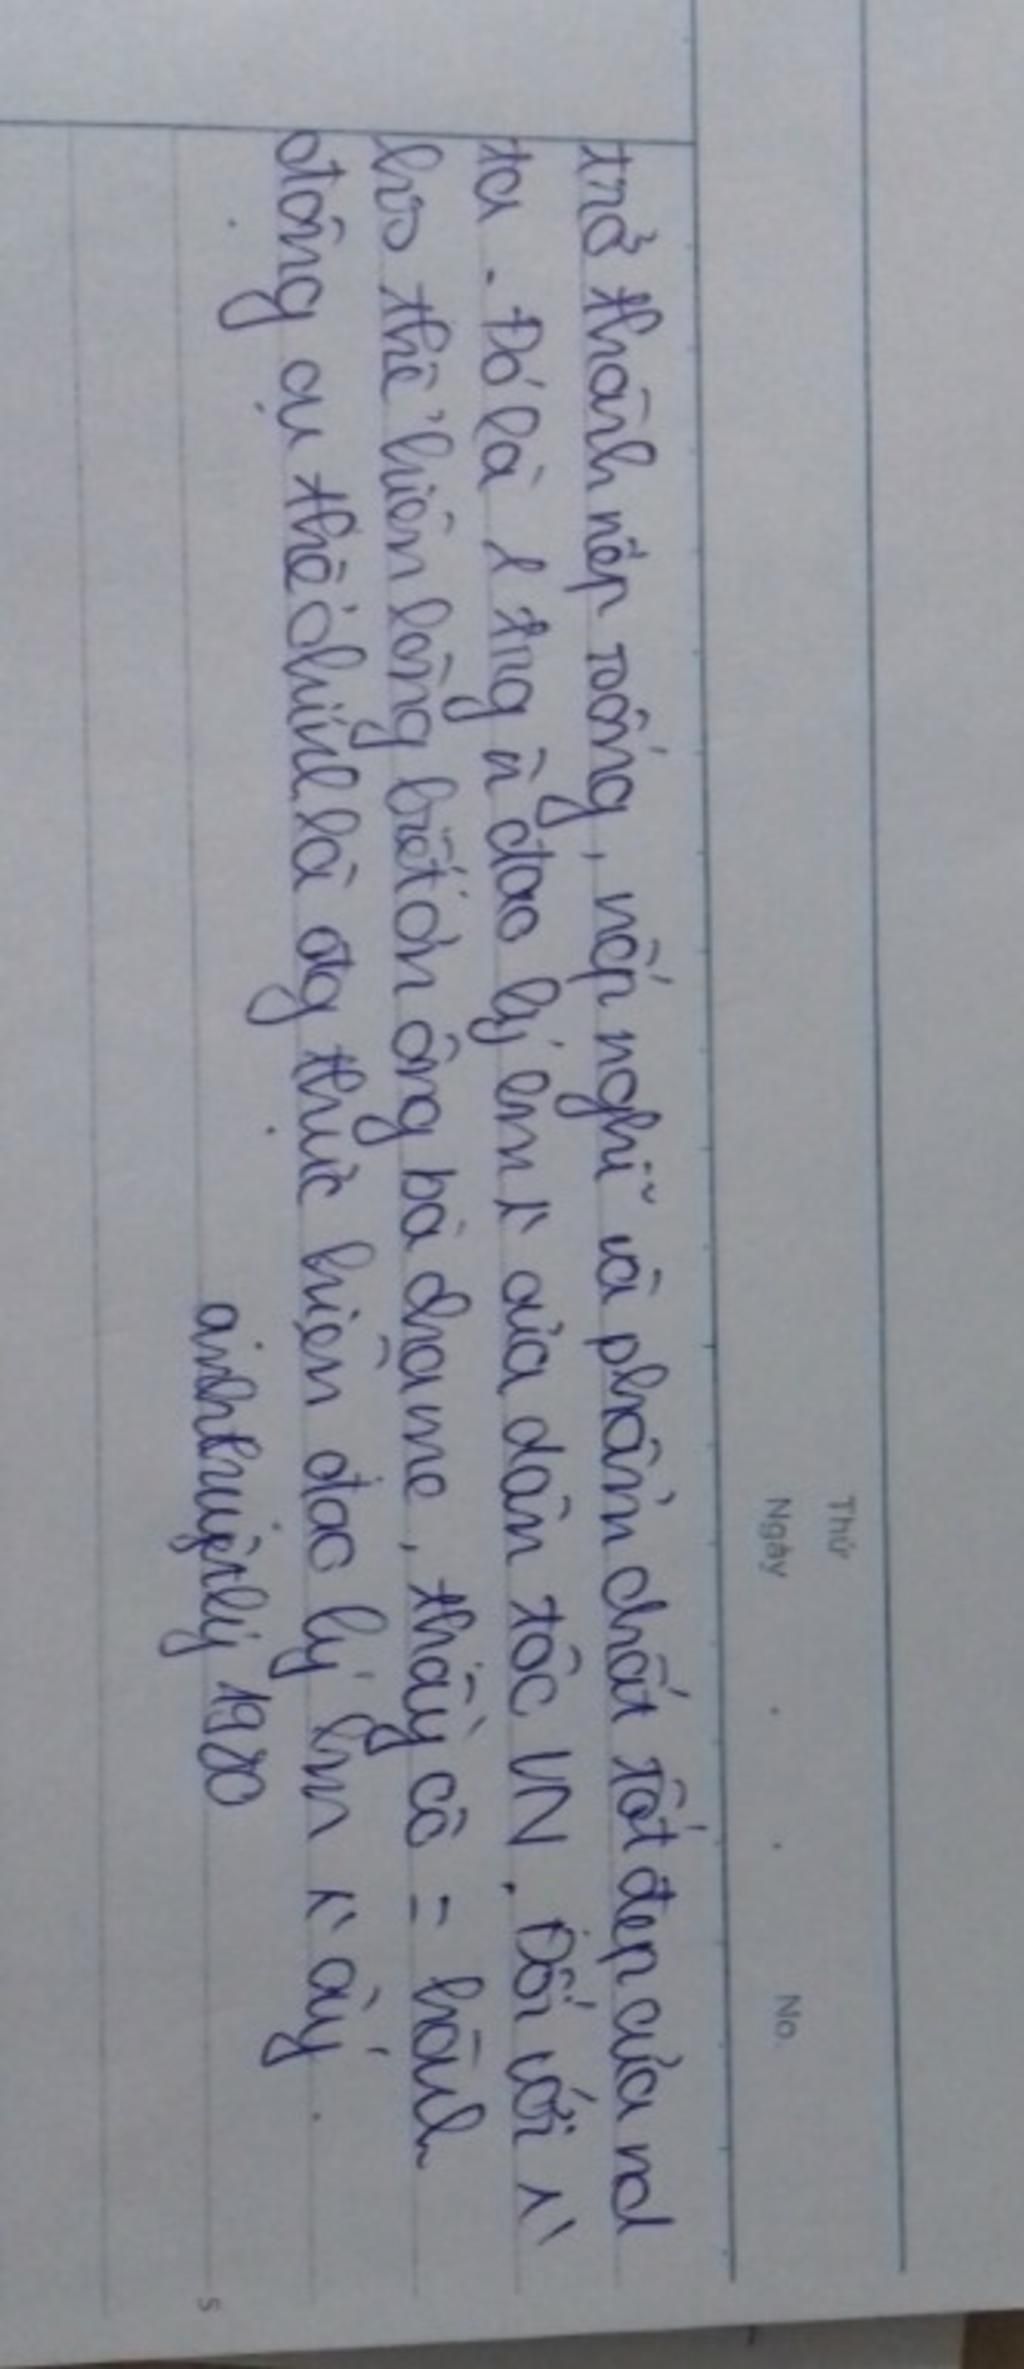 Thứ
Ngày . . No.
trở thành nếp sống, nếp nghĩ và phẩm chất tốt đẹp của nd
ta. Đó là 1 trg đạo lý của dân tộc VN. Đối với
thể hiện lòng biết ơn ông bà cha mẹ, thầy cô = hành
động cụ thể chính là đg thực hiện đạo lý ấy.
ainhuyetly 1980
5